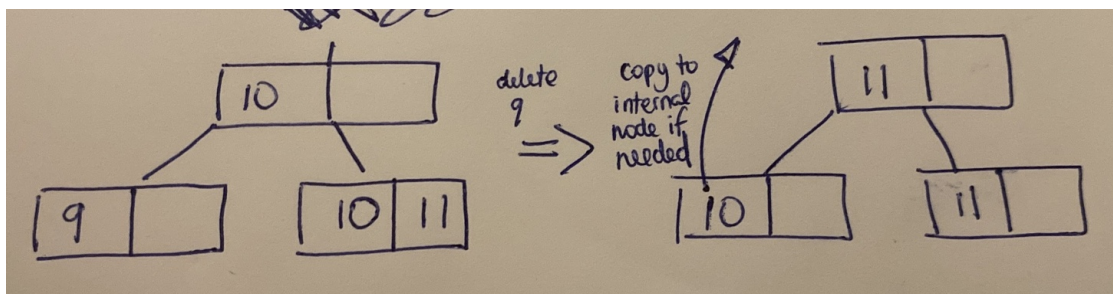 10
9
10 11
delete
9
=>
copy to
internal
node if
needed
11
10
11